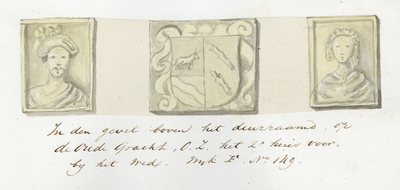 In den gevel boven het deurraamd, op
de Oude Gracht, O.Z. het 2e huis voor-
by het Wed. Wyk F. No 149.